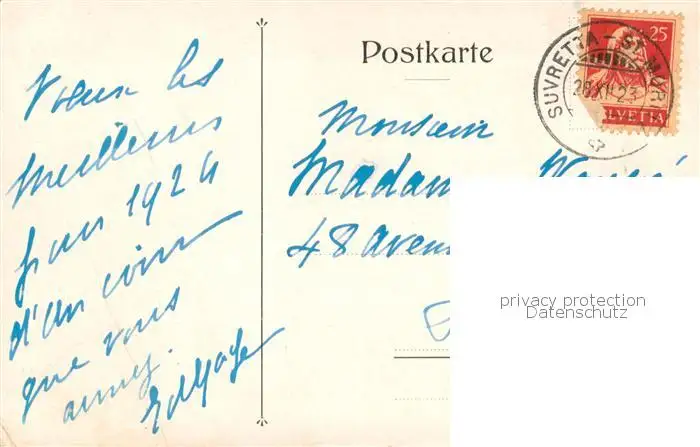 Voeux les
meilleurs
pour 1924
d'un coin
que vous
aimez.
Postkarte
25
HELVETIA
SUVRETTA - ST. MORITZ
28.XII.23
Monsieur
Madam
48 aven
privacy protection
Datenschutz